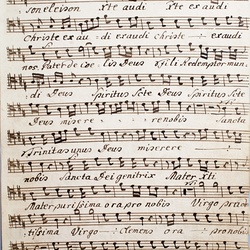 son eleison xte audi xte exaudi
christe exau di exaudi christe exaudi
nos. Pater de Coe lis Deus Fili Redemptor mun
di Deus Spiritus Scte Deus Spiritus Scte
Deus misere re nobis Sancta
Trinitas unus Deus miserere
nobis Sancta Dei genitrix Mater xti
Mater purissima ora pro nobis Virgo
tissima Virgo Clemens ora pro nobis